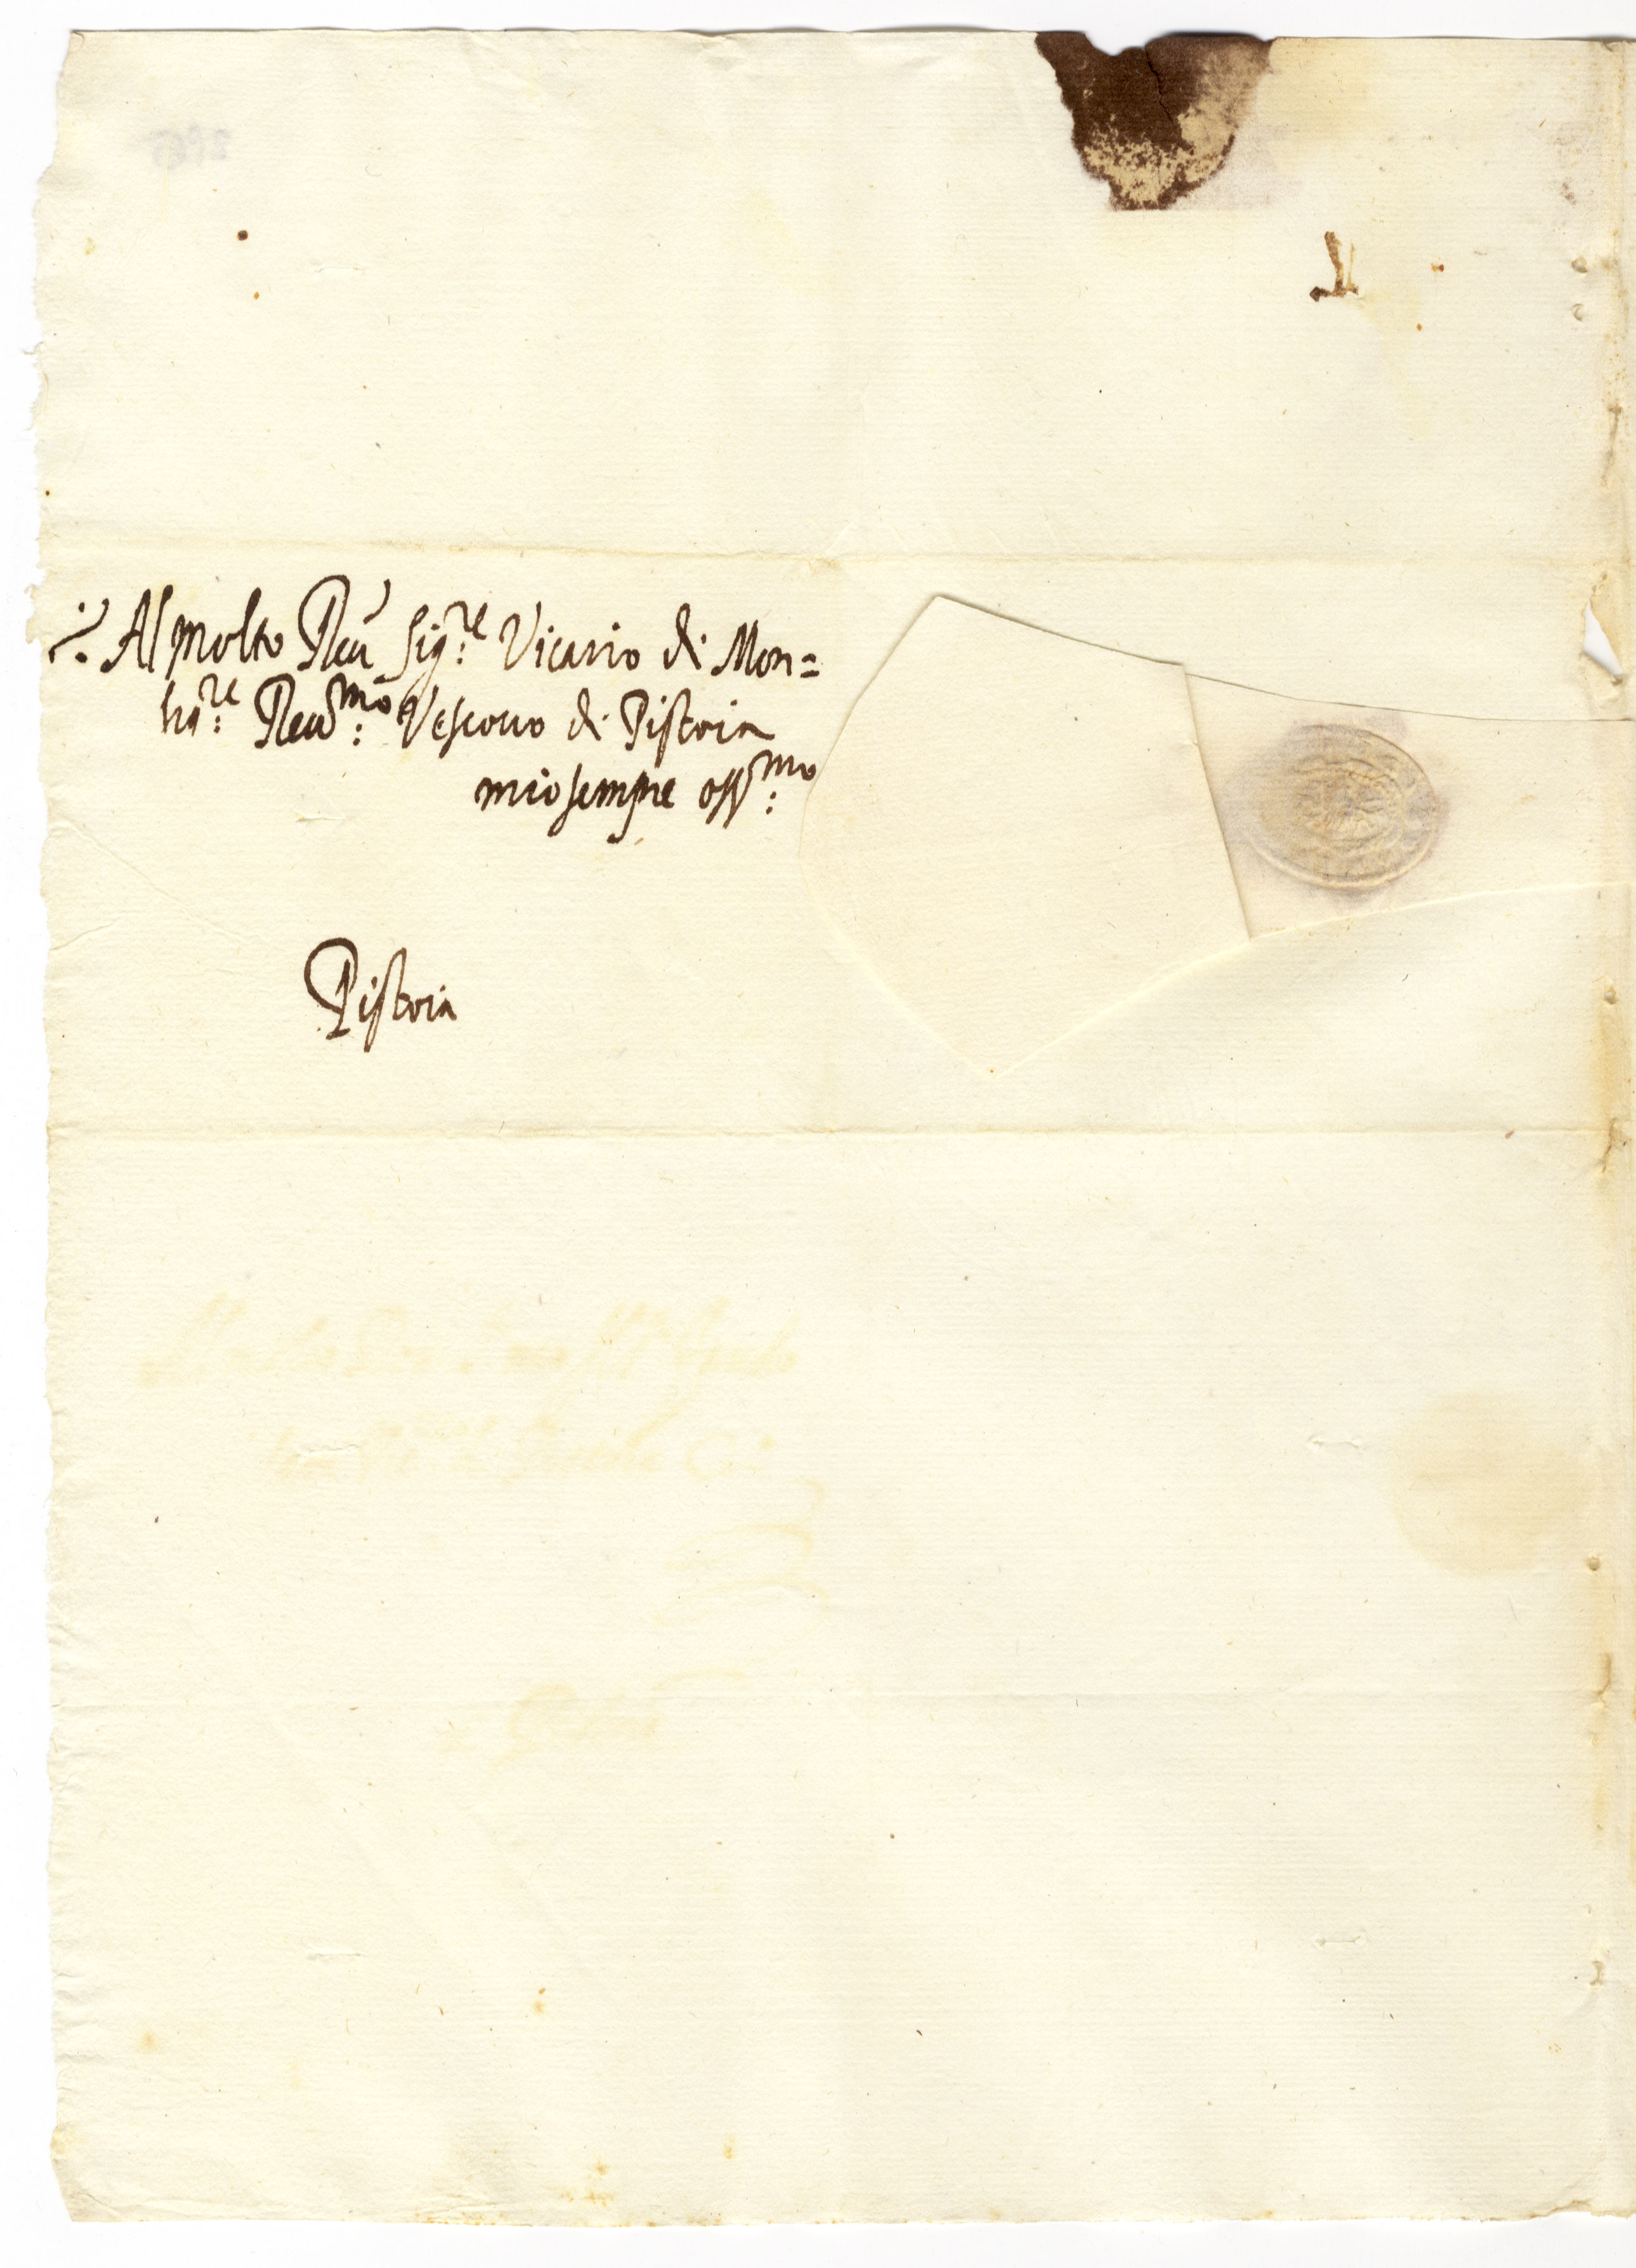 Al Molto Reu Sig:re Vicario di Mon=
sig:re Reu:mo Vescouo di Pistoia
mio sempre oss:mo
Pistoia